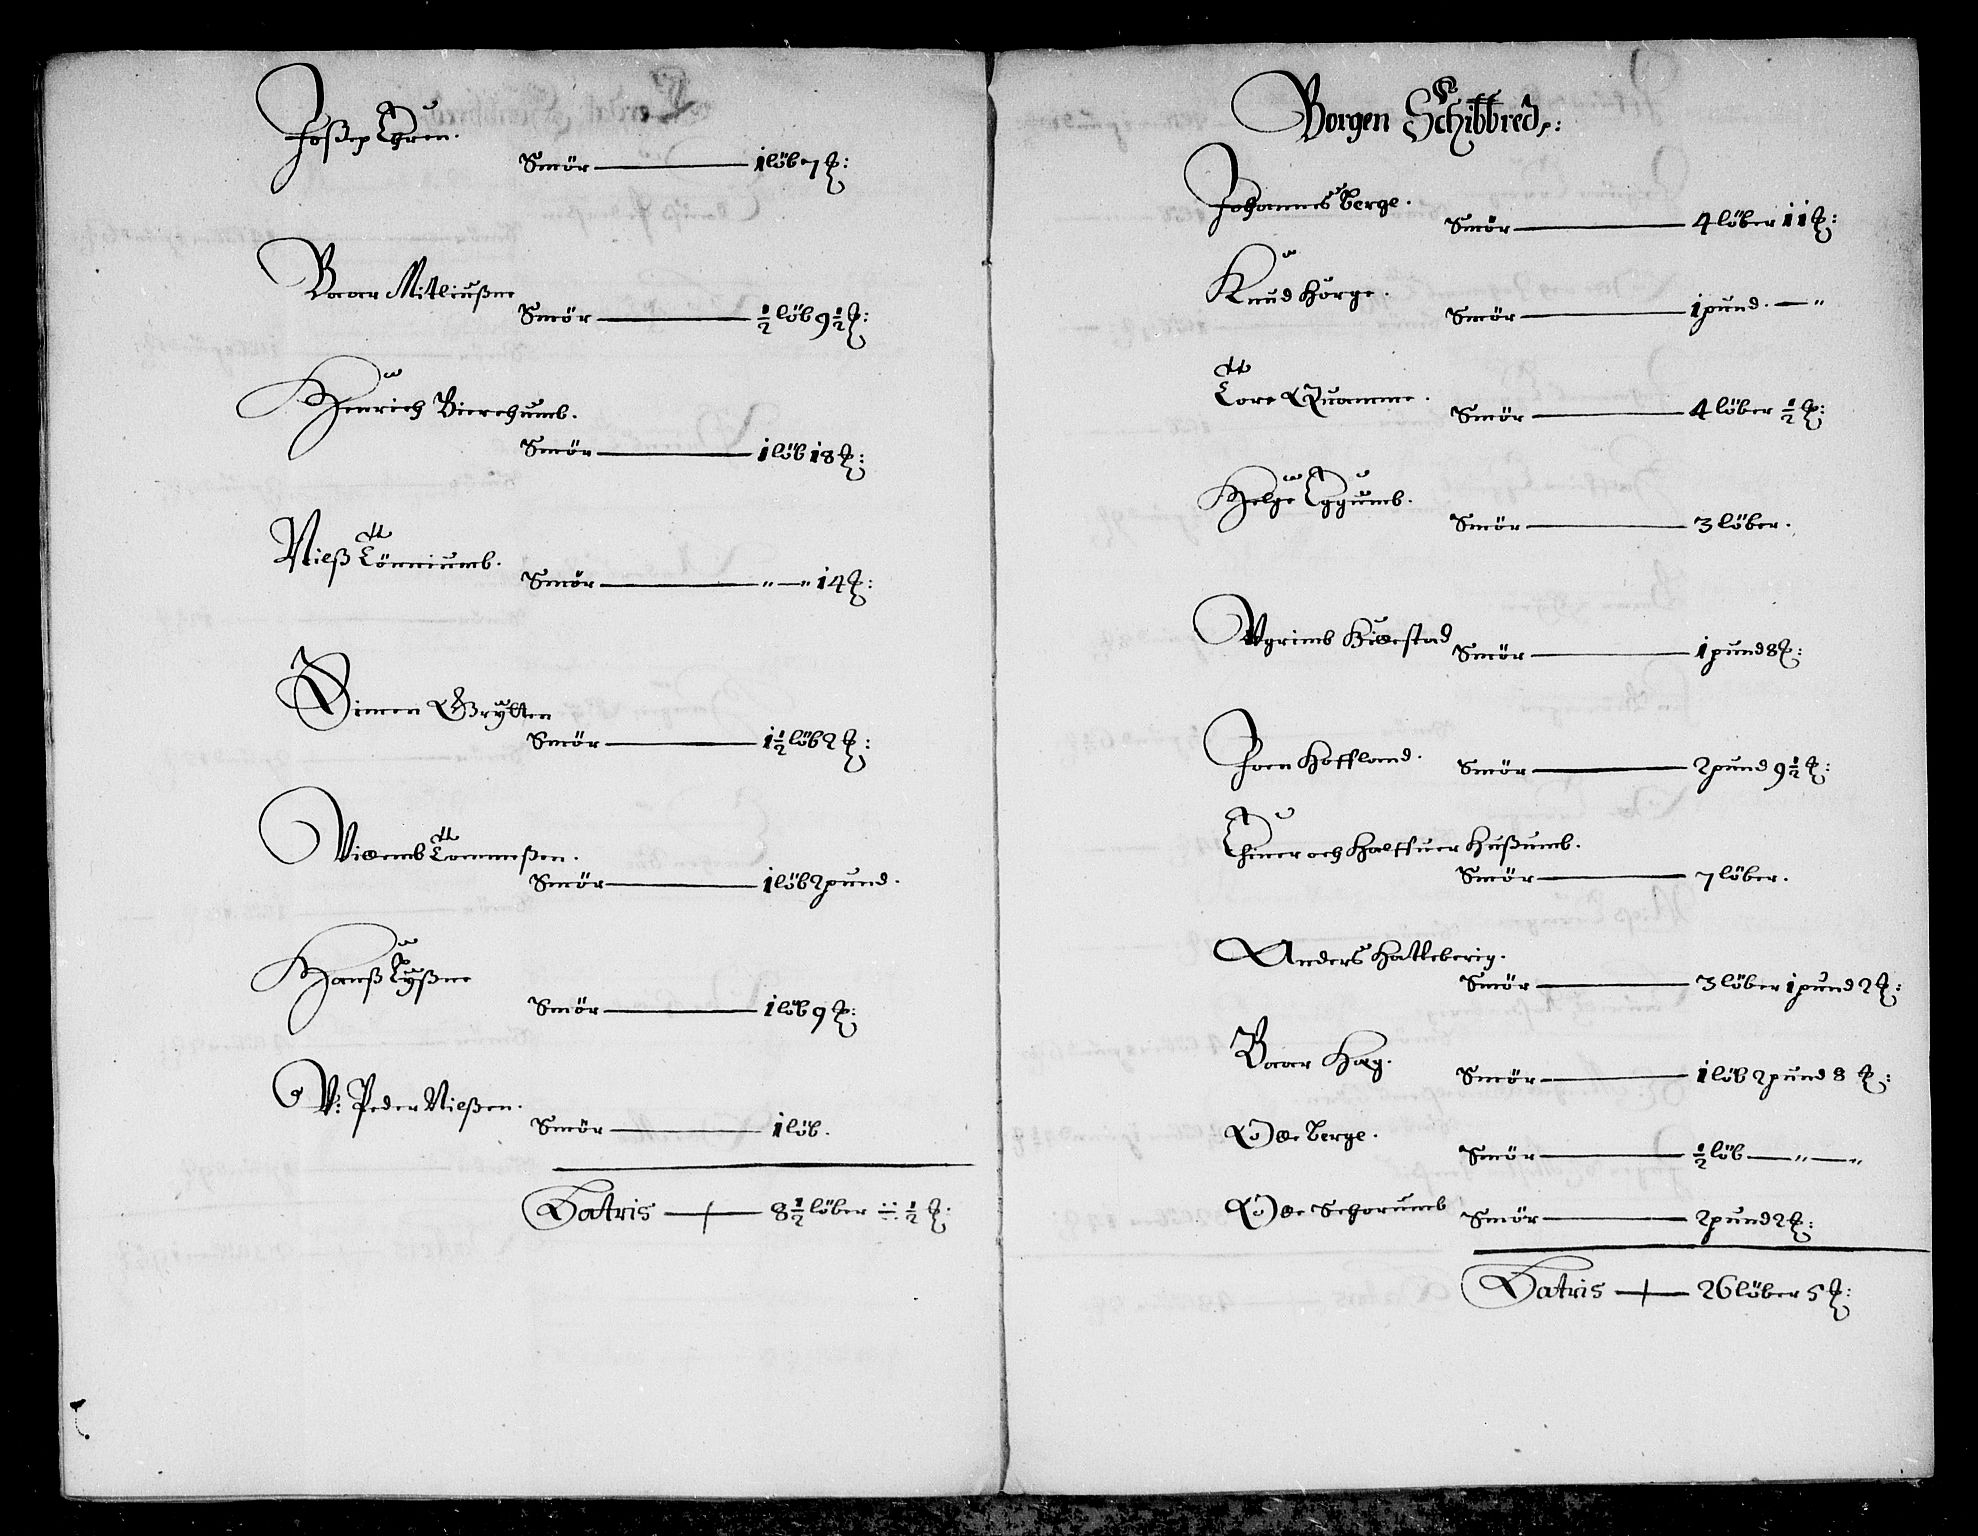 Joßep Thren.
Smör — 1 löb 7 ℔:
Baar Mitliußne
Smör — ½ löb 9½ ℔:
Henrich Bierchumb.
Smör — 1 löb 18 ℔:
Nielß Tönniumb.
Smör — „ — „ 14 ℔:
Simen Grÿtten
Smör — 1½ löb 2 ℔:
Villemb Tommeßen.
Smör — 1 löb 2 pund.
Hanß Lÿßne
Smör — 1 löb 9 ℔:
V: Peder Nielßen.
Smör — 1 löb.
Latris — 8½ löber ÷ ½ ℔:
Borgen Schibbred:
Johannes Berge.
Smör — 4 löber 11 ℔:
Knud Hörge.
Smör — 1 pund. — „
Tore Quamme.
Smör — 4 löber ½ ℔:
Helge Eggumb.
Smör — 3 löber.
Vgrimb Hillestad
Smör — 1 pund 8 ℔:
Joen Hoffland.
Smör — 2 pund 9½ ℔:
Einer och Halffuer Hußumb.
Smör — 7 löber.
Anders Hatleberig.
Smör — 3 löber 1 pund 2 ℔:
Baar Hæg.
Smör — 1 löb 2 pund 8 ℔:
Olle Berge.
Smör — ½ löb — „ — „
Olle Schorumb
Smör — 2 pund 2 ℔:
Latris — 26 löber 5 ℔: